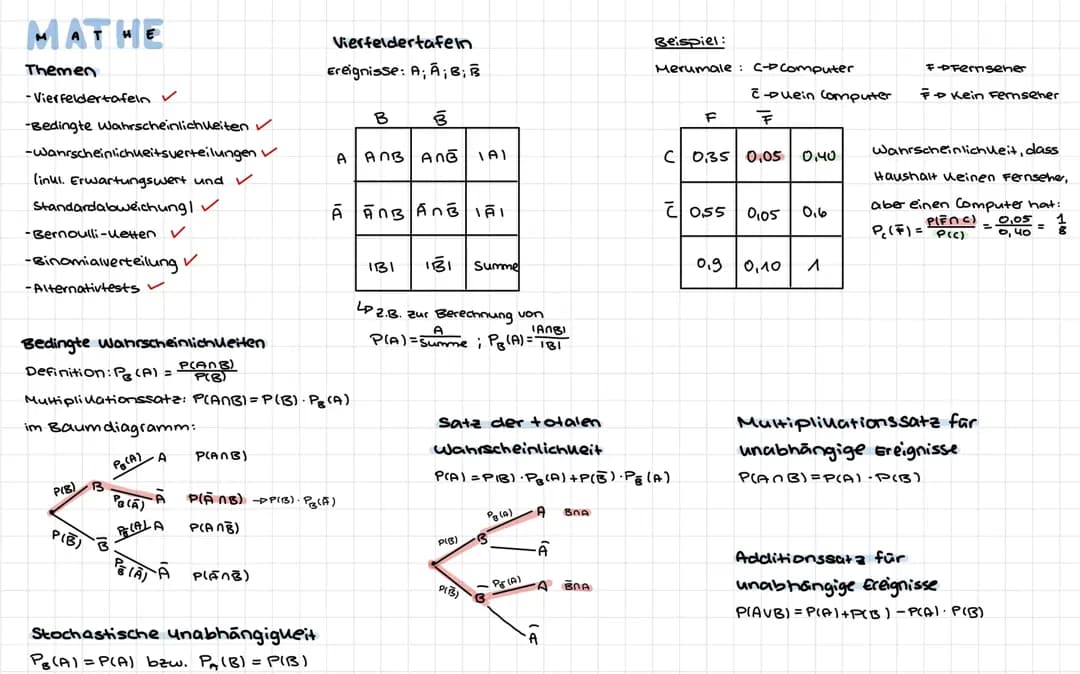 MATHE
MATHE
Themen
- Vierfeldertafeln ✓
- Bedingte Wahrscheinlichkeiten ✓
- Wahrscheinlichkeitsverteilungen ✓
(inkl. Erwartungswert und ✓
Standardabweichung) ✓
- Bernoulli-Ketten ✓
- Binomialverteilung ✓
- Alternativtests ✓
Vierfeldertafeln
Ereignisse: A; Ā; B; B̄
B B̄
A A∩B A∩B̄ |A|
Ā Ā∩B Ā∩B̄ |Ā|
|B| |B̄| Summe
↳ z.B. zur Berechnung von
P(A) = A/Summe ; P_B(A) = |A∩B|/|B|
Beispiel:
Merkmale: C→Computer F→Fernseher
C̄→kein Computer F̄→Kein Fernseher
F F̄
C 0,35 0,05 0,40
C̄ 0,55 0,05 0,6
0,9 0,10 1
Wahrscheinlichkeit, dass
Haushalt keinen Fernsehe,
aber einen Computer hat:
P_C(F̄) = P(F̄∩C)/P(C) = 0,05/0,40 = 1/8
Bedingte Wahrscheinlichkeiten
Definition: P_B(A) = P(A∩B)/P(B)
Multiplikationssatz: P(A∩B) = P(B) · P_B(A)
im Baumdiagramm:
P_B(A) A P(A∩B)
P(B) B
P_B(Ā) Ā P(Ā∩B) → P(B) · P_B(Ā)
P_B̄(A) A P(A∩B̄)
P(B̄) B̄
P_B̄(Ā) Ā P(Ā∩B̄)
Stochastische Unabhängigkeit
P_B(A) = P(A) bzw. P_A(B) = P(B)
Satz der totalen
Wahrscheinlichkeit
P(A) = P(B) · P_B(A) + P(B̄) · P_B̄(A)
P_B(A) A B∩A
P(B) B
Ā
P(B̄) B̄ P_B̄(A) A B̄∩A
Ā
Multiplikationssatz für
unabhängige Ereignisse
P(A∩B) = P(A) · P(B)
Additionssatz für
unabhängige Ereignisse
P(A∪B) = P(A) + P(B) − P(A) · P(B)